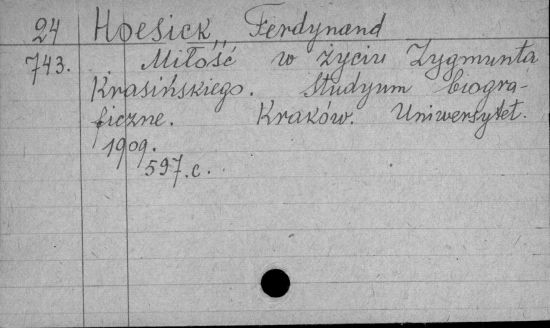 24 Hoesick,, Ferdynand
743. Miłość w życiu Zygmunta
Krasińskiego. Studyum biogra-
ficzne. Kraków. Uniwersytet.
1909.
597.c.